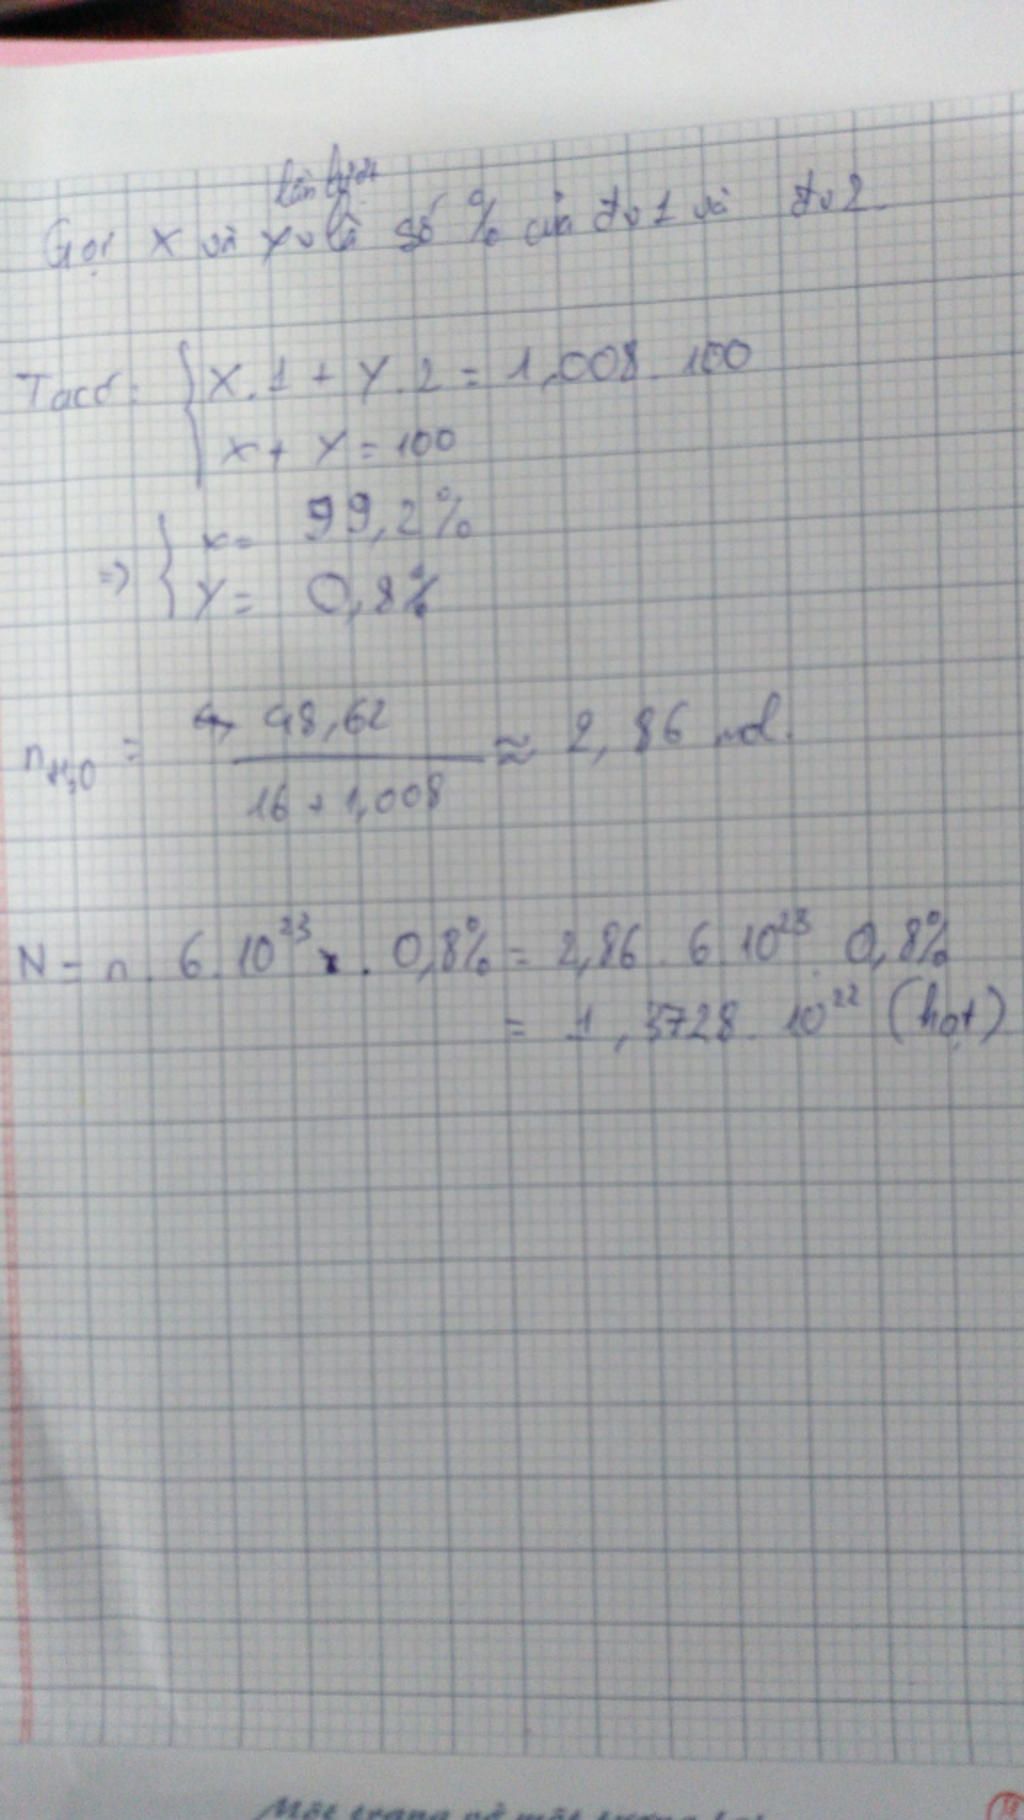 lần lượt
Gọi x và y là số % của đv1 và đv2
Ta có: { X.1 + Y.2 = 1,008.100
x + y = 100
=> { x = 99,2%
Y = 0,8%
nH2O = 48,62 / 16 + 1,008 ≈ 2,86 mol.
N = n . 6.10²³ . 0,8% = 2,86 . 6.10²³ . 0,8%
= 1,3728.10²² (hạt)